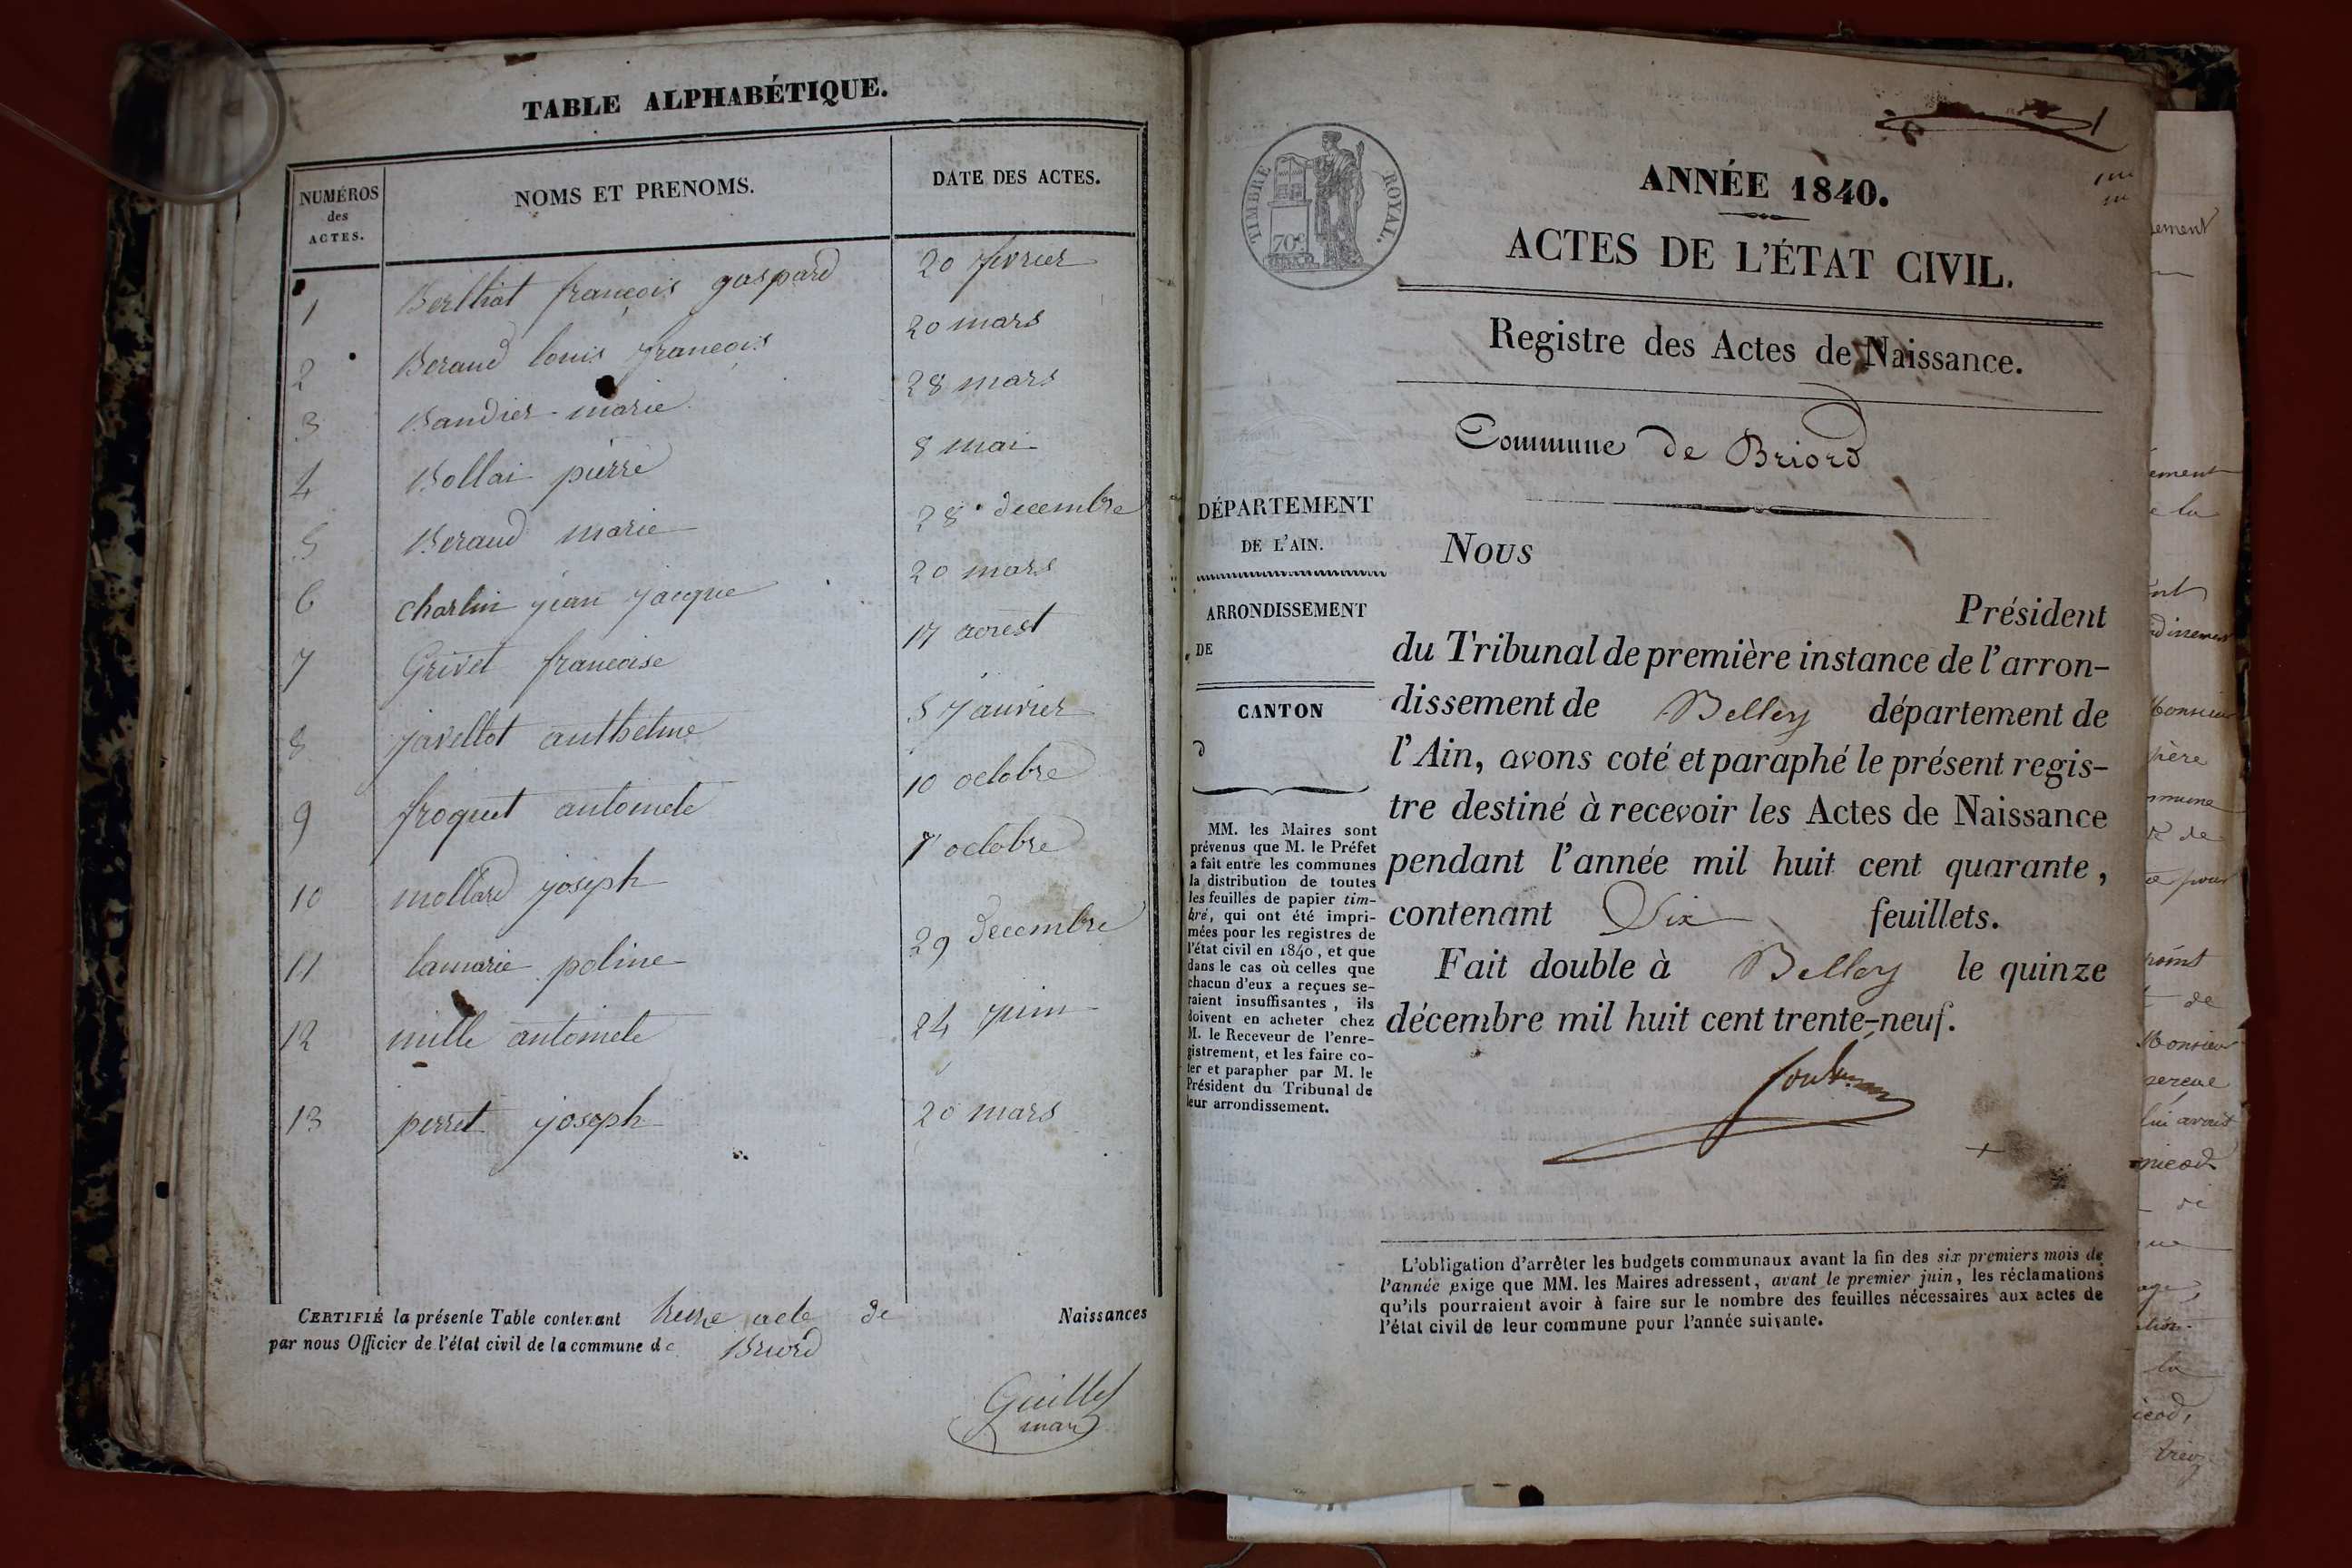 TABLE ALPHABÉTIQUE.
NUMÉROS
des
ACTES.
NOMS ET PRENOMS.
DATE DES ACTES.
1 Berthiat françois gaspard 20 fevrier
2 Beraud louis françois 20 mars
3 Baudier marie 28 mars
4 Bollai pierre 8 mai
5 Beraud marie 28 decembre
6 charlin jean jacque 20 mars
7 Grivet francoise 17
8 javellot anthelme 5 janvier
9 froquet antoinete 10 octobre
10 mollard joseph 7 octobre
11 lamarie poline 29 decembre
12 mille antoinete 24 juin
13 perret joseph 20 mars
CERTIFIÉ la présente Table contenant treize acte de Naissances
par nous Officier de l'état civil de la commune de Briord
Guillet
TIMBRE ROYAL.
70c
1
ANNÉE 1840.
ACTES DE L'ÉTAT CIVIL.
Registre des Actes de Naissance.
Commune de Briord
DÉPARTEMENT
DE L'AIN.
ARRONDISSEMENT
DE
CANTON
d
MM. les Maires sont
prévenus que M. le Préfet
a fait entre les communes
la distribution de toutes
les feuilles de papier tim-
bré, qui ont été impri-
mées pour les registres de
l'état civil en 1840, et que
dans le cas où celles que
chacun d'eux a reçues se-
raient insuffisantes, ils
doivent en acheter chez
M. le Receveur de l'enre-
gistrement, et les faire co-
ter et parapher par M. le
Président du Tribunal de
leur arrondissement.
Nous
Président
du Tribunal de première instance de l'arron-
dissement de Belley département de
l'Ain, avons coté et paraphé le présent regis-
tre destiné à recevoir les Actes de Naissance
pendant l'année mil huit cent quarante,
contenant Six feuillets.
Fait double à Belley le quinze
décembre mil huit cent trente-neuf.
L'obligation d'arrêter les budgets communaux avant la fin des six premiers mois de
l'année exige que MM. les Maires adressent, avant le premier juin, les réclamations
qu'ils pourraient avoir à faire sur le nombre des feuilles nécessaires aux actes de
l'état civil de leur commune pour l'année suivante.